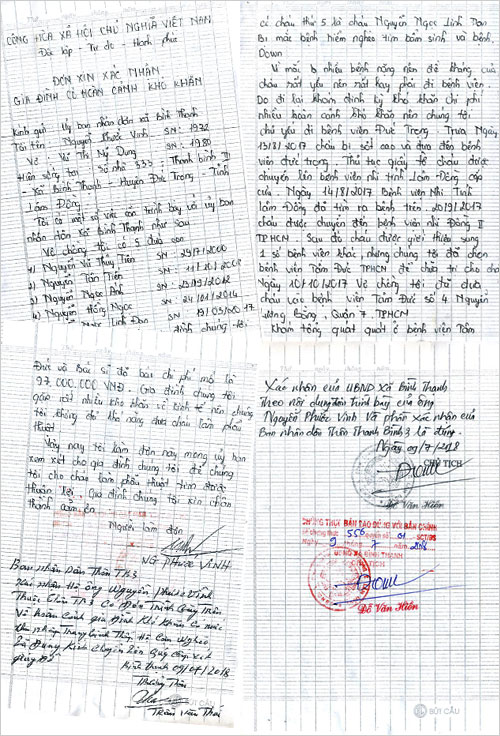 CỘNG HÒA XÃ HỘI CHỦ NGHĨA VIỆT NAM
Độc lập - Tự do - Hạnh phúc
ĐƠN XIN XÁC NHẬN
GIA ĐÌNH CÓ HOÀN CẢNH KHÓ KHĂN
Kính gửi: Ủy ban nhân dân xã Bình Thanh
Tôi tên: Nguyễn Phước Vinh SN: 1972
Vợ: Vũ Thị Mỹ Dung SN: 1980
Hiện sống tại: Số nhà 533 - Thanh bình II
- Xã Bình Thanh - Huyện Đức Trọng - Tỉnh
Lâm Đồng
Tôi có một số việc cần trình bày với ủy ban
nhân dân xã Bình Thanh như sau
Vợ chồng tôi có 5 đứa con
1) Nguyễn Vũ Thủy Tiên SN: 29/7/2000
2) Nguyễn Tấn Tiến SN: 11/
3) Nguyễn Ngọc Anh SN:
4) Nguyễn Hồng Ngọc SN: 24/01/2014
Nguyễn Ngọc Linh Đan SN: 19/03/2017
đình chúng tôi
có cháu thứ 5 là cháu Nguyễn Ngọc Linh Đan
Bị mắc bệnh hiểm nghèo tim bẩm sinh và bệnh
Down
Vì mới bị nhiều bệnh nặng nên đề kháng của
cháu rất yếu nên rất hay phải đi bệnh viện.
Do đi lại khám định kỳ khó khăn chi phí
nhiều hoàn cảnh khó khăn nên chúng tôi
chủ yếu đi bệnh viện Đức Trọng. Trưa Ngày
13/8/2017 cháu bị sốt cao và đưa đến bệnh
viện đức trọng. Thủ tục giấy tờ cháu được
chuyển lên bệnh viện nhi tỉnh Lâm Đồng cấp
cứu. Ngày 14/8/2017 Bệnh viện Nhi Tỉnh
Lâm Đồng đã tìm ra bệnh trên 20/9/2017
cháu được chuyển đến bệnh viện nhi Đồng II
TPHCM. Sau đó cháu được giới thiệu sang
1 số bệnh viện khác, nhưng chúng tôi đã chọn
bệnh viện Tâm Đức TPHCM để chữa trị cho cháu
Ngày 10/10/2017 Vợ chồng tôi đã đưa
cháu lên bệnh viện Tâm Đức số 4 Nguyễn
Lương Bằng, Quận 7, TPHCM
Khám tổng quát quát ở bệnh viện Tâm
Đức và Bác sĩ đã báo chi phí mổ là
97.000.000 VNĐ. Gia đình chúng tôi
gặp rất nhiều khó khăn về kinh tế nên chúng
tôi không đủ khả năng đưa cháu làm phẫu
thuật
Vậy nay tôi làm đơn này mong ủy ban
xem xét cho gia đình chúng tôi để chúng
tôi cho cháu làm phẫu thuật tim được
thuận lợi. Gia đình chúng tôi xin chân
thành cảm ơn
Người làm đơn
PHƯỚC VINH
Ban nhân Dân Thôn Th3
Xác nhận Hộ ông Nguyễn Phước Vinh
09/07/2018
Trưởng Thôn
Trần Văn Thái
Xác nhận của UBND Xã Bình Thanh
Theo nội dung đơn trình bày của ông
Nguyễn Phước Vinh Và phần xác nhận của
Ban nhân dân Thôn Thanh Bình 3 là đúng.
Ngày 09/7/2018
CHỦ TỊCH
Đỗ Văn Hiền
CHỨNG THỰC BẢN SAO ĐÚNG VỚI BẢN CHÍNH
Số chứng thực 556 quyển số 01 SCT/BS
Ngày 9 tháng 7 năm 2018
UBND XÃ BÌNH THẠNH
CHỦ TỊCH
Đỗ Văn Hiền
BÚT CẦU